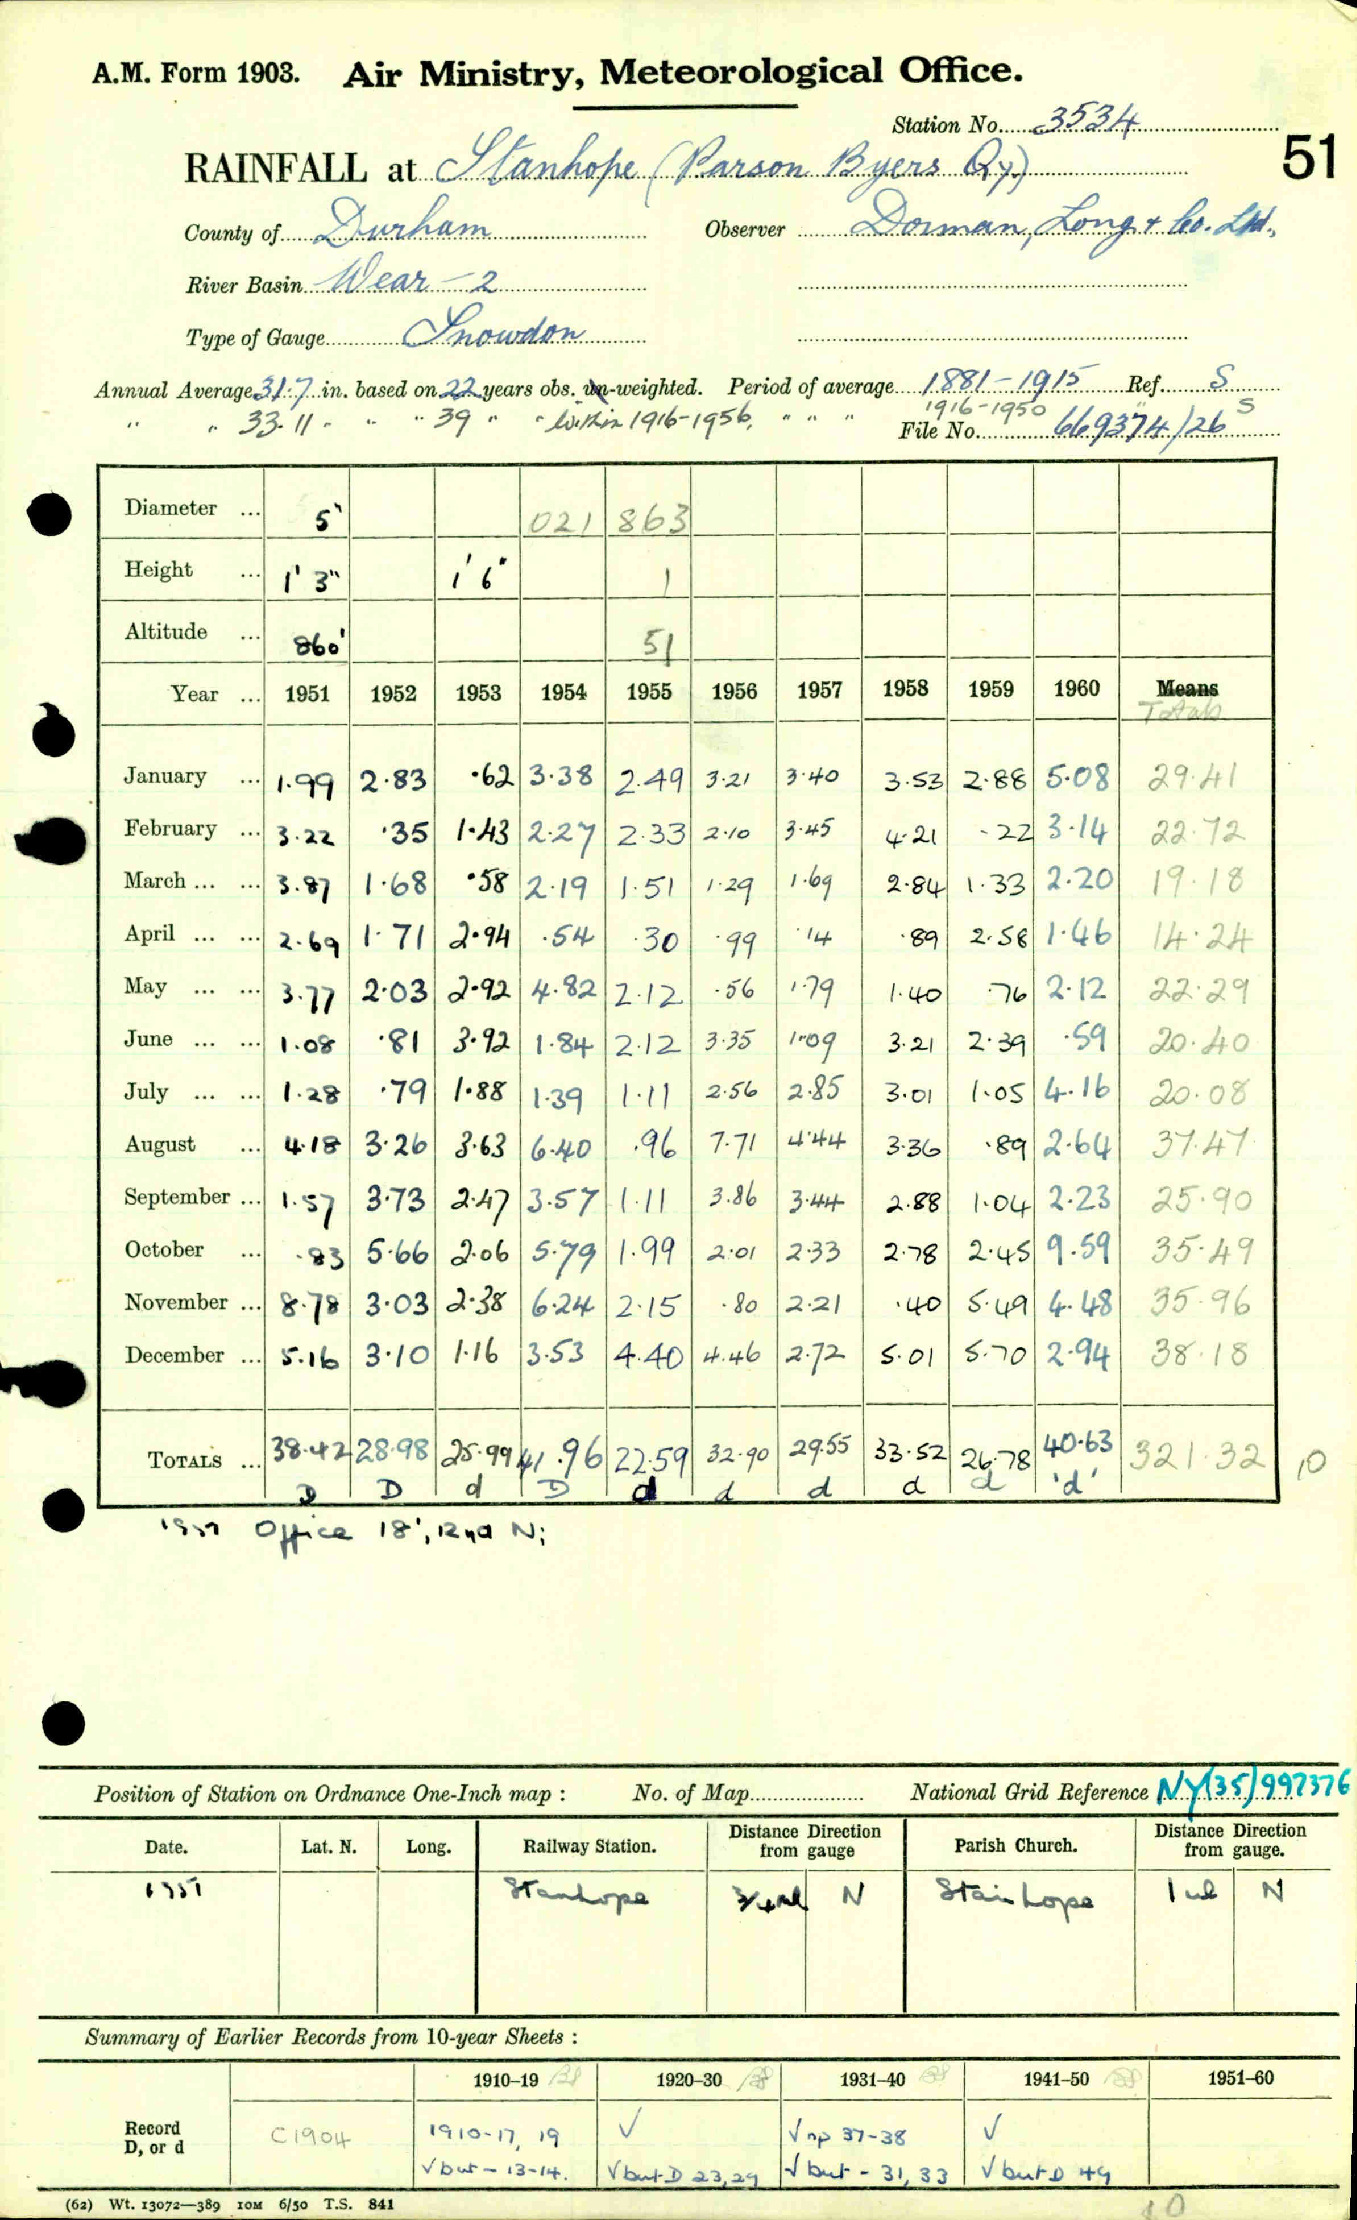 A.M. Form 1903. Air Ministry, Meteorological Office.
Station No. 3534
51
RAINFALL at Stanhope (Parson Byers Qy.)
County of Durham Observer Dorman, Long & Co. Ltd.,
River Basin Wear - 2
Type of Gauge Snowdon
Annual Average 31.7 in. based on 22 years obs. un-weighted. Period of average 1881-1915 Ref. S
" " 33.11 " " " 39 " " within 1916-1956, " " " 1916-1950 " S
File No. 669374/26
Diameter ... 5" 021 863
Height ... 1' 3" 1' 6" 1
Altitude ... 860' 51
Year ... 1951 1952 1953 1954 1955 1956 1957 1958 1959 1960 Means
Totals
January ... 1.99 2.83 .62 3.38 2.49 3.21 3.40 3.53 2.88 5.08 29.41
February ... 3.22 .35 1.43 2.27 2.33 2.10 3.45 4.21 .22 3.14 22.72
March ... ... 3.87 1.68 .58 2.19 1.51 1.29 1.69 2.84 1.33 2.20 19.18
April ... ... 2.69 1.71 2.94 .54 .30 .99 .14 .89 2.58 1.46 14.24
May ... ... 3.77 2.03 2.92 4.82 2.12 .56 1.79 1.40 .76 2.12 22.29
June ... ... 1.08 .81 3.92 1.84 2.12 3.35 1.09 3.21 2.39 .59 20.40
July ... ... 1.28 .79 1.88 1.39 1.11 2.56 2.85 3.01 1.05 4.16 20.08
August ... 4.18 3.26 3.63 6.40 .96 7.71 4.44 3.36 .89 2.64 37.47
September ... 1.57 3.73 2.47 3.57 1.11 3.86 3.44 2.88 1.04 2.23 25.90
October ... .83 5.66 2.06 5.79 1.99 2.01 2.33 2.78 2.45 9.59 35.49
November ... 8.78 3.03 2.38 6.24 2.15 .80 2.21 .40 5.49 4.48 35.96
December ... 5.16 3.10 1.16 3.53 4.40 4.46 2.72 5.01 5.70 2.94 38.18
TOTALS ... 38.42 28.98 25.99 41.96 22.59 32.90 29.55 33.52 26.78 40.63 321.32 10
D D d D d d d d d 'd'
1951 Office 18', 12yd N;
Position of Station on Ordnance One-Inch map : No. of Map National Grid Reference NY(35)997376
Date. Lat. N. Long. Railway Station. Distance from gauge Direction Parish Church. Distance from gauge. Direction
1951 Stanhope 3/4 ml N Stanhope 1 ml N
Summary of Earlier Records from 10-year Sheets :
1910–19 1920–30 1931–40 1941–50 1951–60
Record D, or d C1904 1910-17, 19 √ √ np 37-38 √
√ but - 13-14. √ but D 23,29 √ but - 31, 33 √ but D 49
(62) Wt. 13072—389 10M 6/50 T.S. 841
10